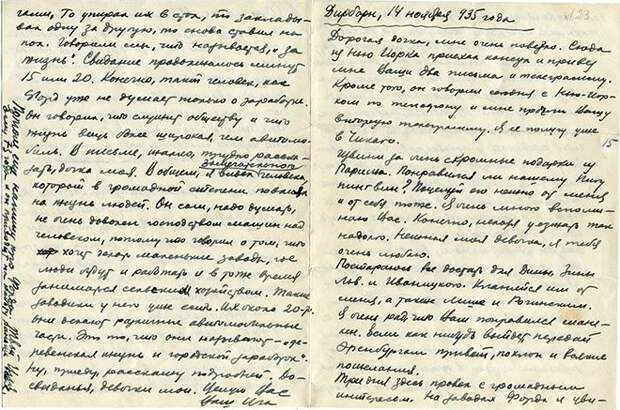 гами, то упирал их в стол, то заклады-
вал одну за другую, то снова ставил на
пол. Говорили мы, что называется, "за
жизнь". Свидание продолжалось минут
15 или 20. Конечно, такой человек, как
Форд уже не думает только о заработке.
Он говорил, что служит обществу и что
жизнь вещь более широкая, чем автомо-
биль. В письме, трудно расска-
зать, дочка моя. В общем, я видел человека
замечательного
который в громадной степени повлиял
на жизнь людей. Он сам, надо думать,
не очень доволен господством машин над
человеком, потому что говорил о том, что
хочет делать маленькие заводы, где
люди будут и работать и в тоже время
заниматься сельским хозяйством. Такие
заводики у него уже есть. Их около 20-и.
Они делают различные автомобильные
части. Это то, что они называют - "де-
ревенская жизнь и городской заработок".
Ну, приеду, расскажу подробней. До-
свиданья, девочки мои. Целую Вас
Ваш Иля
Дирборн, 14 ноября 935 года
Дорогая дочка, мне очень повезло. Сюда
из Нью Йорка приехал консул и привез
мне Ваши два письма и телеграмму.
Кроме того, он говорил сегодня с Нью-Йор-
ком по телефону и мне прочли Вашу
вторую телеграмму. Я ее получу уже
в Чикаго.
15
Извини за очень скромные подарки из
Парижа. Понравился ли нашему Пигу
пингвин? Поцелуй его нежно от меня
и от себя тоже. Я очень много вспоми-
наю Вас. Конечно, нельзя уезжать так
надолго. Нежная моя девочка, я тебя
очень люблю.
Постараюсь все достать для Димы, Зины
Льв. и Иваницкого. Кланяйся им от
меня, а также Мише и Рогинским.
Я очень рад, что Вам понравился мане-
кен. Если как нибудь выйдет передай
Эренбургам привет, поклон и всякие
пожелания.
Три дня здесь провел с громадным
интересом. На заводах Форда я уви-